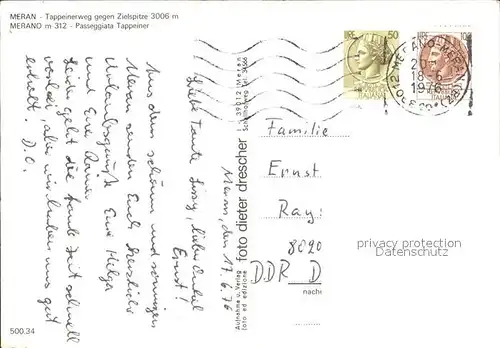 MERAN - Tappeinerweg gegen Zielspitze 3006 m
MERANO m 312 - Passeggiata Tappeiner
Meran, den 17.6.76
Liebe Tante Sissy, lieber Onkel
Ernst!
Aus dem schönen und sonnigen
Meran senden Euch herzliche
Urlaubsgrüße Eure Helga
und Euer Rainer
Leider geht die Zeit schnell
vorbei, aber wir haben uns gut
erholt. D.O.
foto dieter drescher
Aufnahme u. Verlag
foto ed edizione
I - 39012 Meran
LIRE 50
LIRE 100
ITALIA
MERANO-MERAN
18-6
1976
Familie
Ernst
Ray
8020
DDR D
nach
privacy protection
Datenschutz
500.34